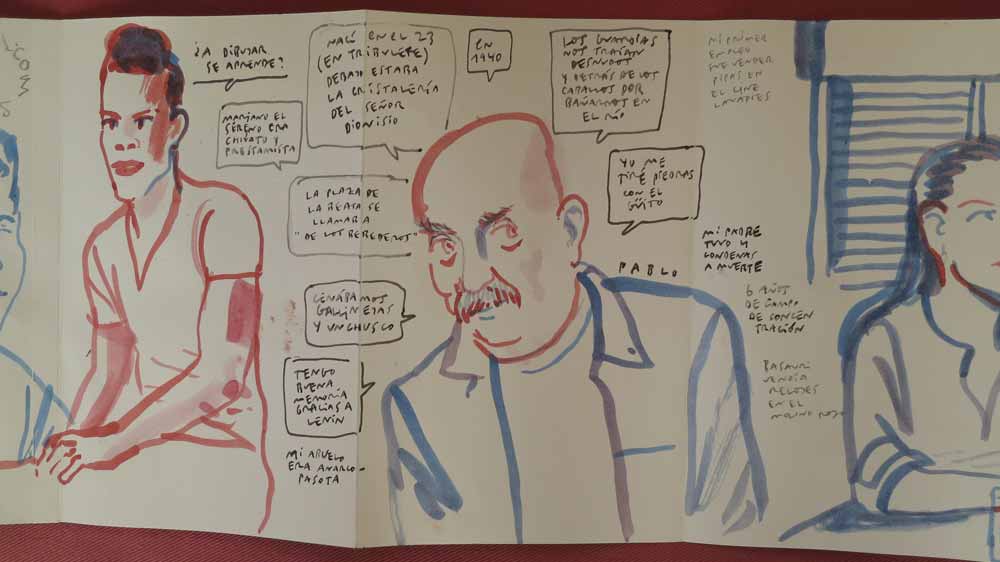 ¿A DIBUJAR
SE APRENDE?
MARIANO EL
SERENO ERA
CHIVATO Y
PRESTAMISTA
NACÍ EN EL 23
(EN TRIBULETE)
DEBAJO ESTABA
LA CRISTALERÍA
DEL SEÑOR
DIONISIO
LA PLAZA DE
LA BEATA SE
LLAMABA
"DE LOS BEBEDEROS"
CENÁBAMOS
GALLINETAS
Y UN CHUSCO
TENGO
BUENA
MEMORIA
GRACIAS A
LENIN
MI ABUELO
ERA ANARCO-
PASOTA
EN
1940
LOS GUARDIAS
NOS TRAÍAN
DESNUDOS
Y DETRÁS DE LOS
CABALLOS POR
BAÑARNOS EN
EL RÍO
YO ME
TIRÉ PIEDRAS
CON EL
GÜITO
PABLO
MI PRIMER
EMPLEO
FUE VENDER
PIPAS EN
EL CINE
LAVAPIES
MI PADRE
TUVO 4
CONDENAS
A MUERTE
6 AÑOS
DE CAMPO
DE CONCEN
TRACIÓN
BASAURI
VENDÍA
RELOJES
EN EL
MOLINO ROJO